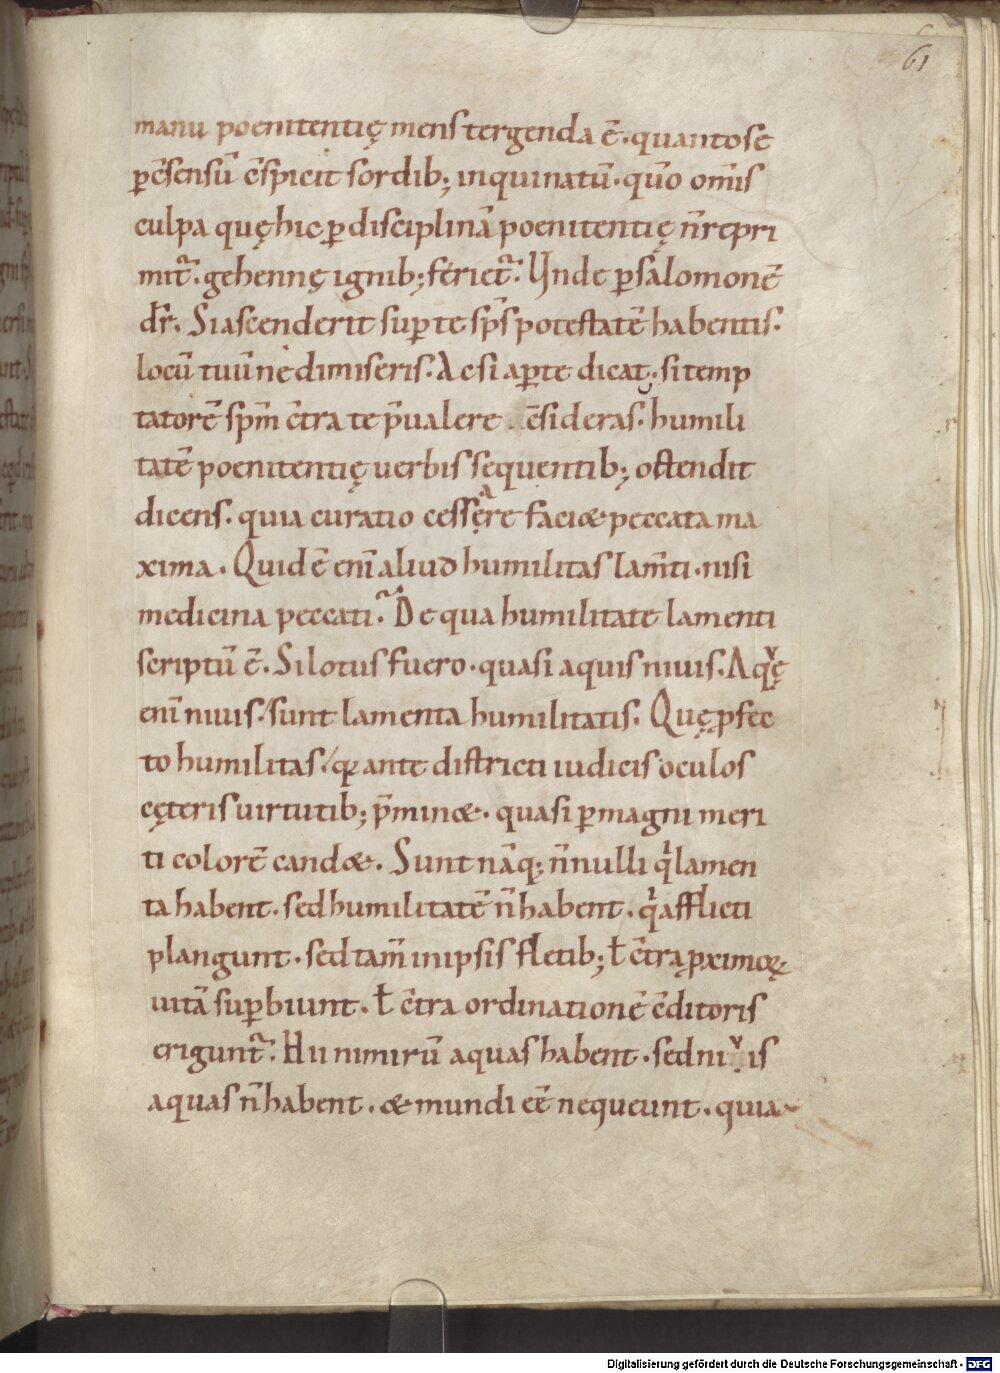 61
manu poenitentię mens tergenda ē. quanto se
p̱ c̄sensū c̄spicit sordib; inquinatū. qūo om̄is
culpa quę hic p̱ disciplinā poenitentię n̄ repri
mit᷑. gehennę ignib; feriet᷑. Unde p̱ salomonē
dr̄. Si ascenderit sup̱ te sp̄s potestatē habentis.
locū tuū ne dimiseris. Ac si ap̱te dicat. si temp
tatorē sp̄m c̄tra te p̄ualere c̄sideras. humili
tatē poenitentię uerbis sequentib; ostendit
dicens. quia curatio cessare faci& peccata ma
xima. Quid ē eni̅ aliud humilitas lam̄ti. nisi
medicina peccati. De qua humilitate lamenti
scriptū ē. Si lotus fuero. quasi aquis niuis. Aquę
eni̅ niuis. sunt lamenta humilitatis. Quę ꝓfec
to humilitas. quia ante districti iudicis oculos
cęteris uirtutib; p̄min&. quasi p̱ magni meri
ti colorē cand&. Sunt nāq; n̄nulli qͥ lamen
ta habent. sed humilitatē n̄ habent. qͥ afflicti
plangunt. sed tam̄ in ipsis fletib; ł c̄tra ꝓximoꝝ
uitā sup̱biunt. ł c̄tra ordinationē c̄ditoris
erigunt᷑. Hii nimirū aquas habent. sed niuis
aquas n̄ habent. & mundi ēē nequeunt. quia
Digitalisierung gefördert durch die Deutsche Forschungsgemeinschaft - DFG